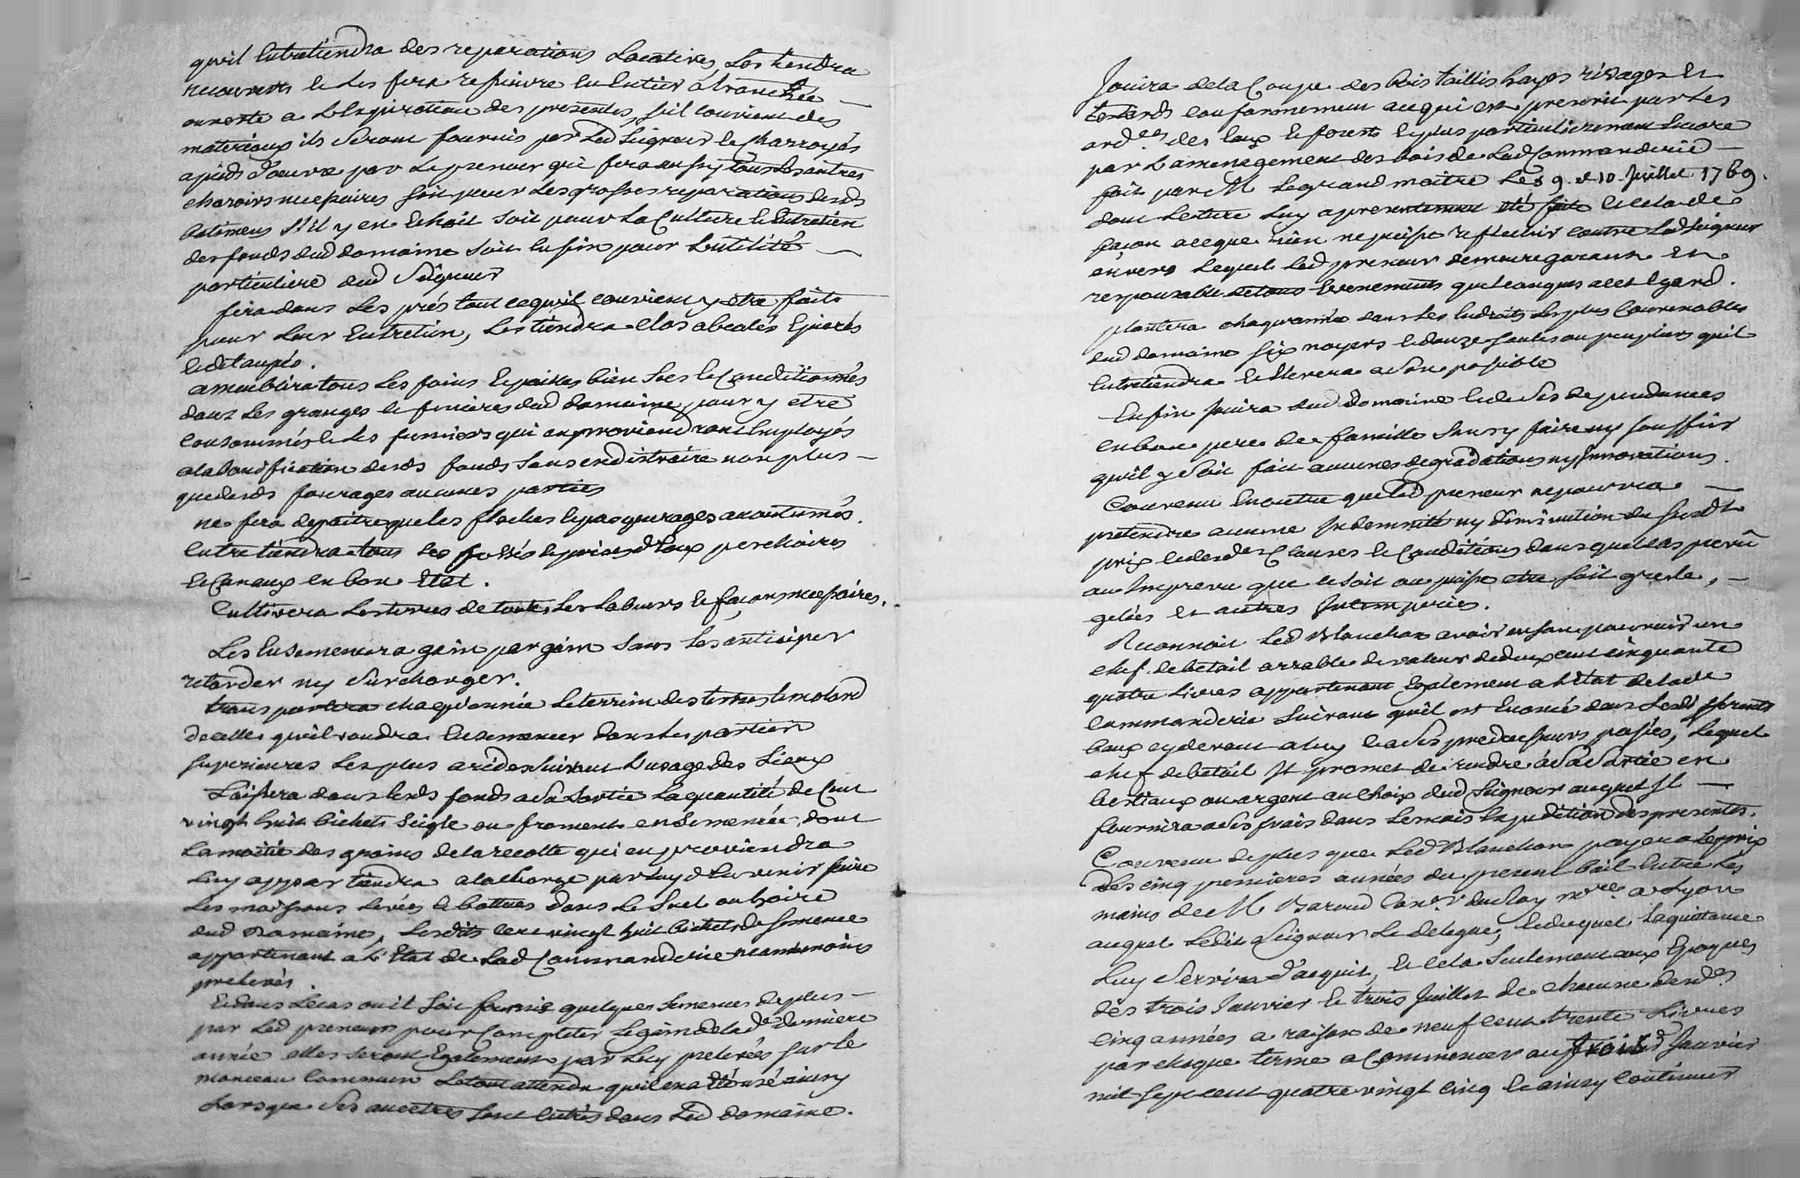 qu'il Entretiendra des reparations Locatives, Les tiendra
recouverts et Les fera refaire en Entier a tranchée
ouverte a L'Expiration des presentes, s'il convient des
materiaux ils seront fournis par Led Seigneur et charroyés
a pieds d'œuvre par Le preneur qui fera aussy tous Les autres
charois necessaires soit pour Les grosses reparations desds
batimens s'il y en Echoit soit pour La Culture et Entretien
des fonds dud domaine soit enfin pour L'utilité
particuliere dud Seigneur
fera dans Les prés tout ce qu'il convient y etre fait
pour Leur Entretien, Les tiendra clos abealés Epierés
et detaupés.
ameublira tous Les foins et pailles bien secs et Conditionnés
dans Les granges et fenieres dud domaine pour y etre
Consommés et Les fumiers qui en proviendront Employés
a la bonification desds fonds sans en distraire non plus
que desds fourages aucunes parties
ne fera depaitre que Les fleches et pasquerages accoutumés.
Entretiendra tous Les fossés et prises d'Eaux perchoires
et Canaux en bon Etat.
Cultivera Les terres de toutes Les Labeurs et façons necessaires.
Les Ensemencera gain par gain sans Les anticiper
retarder ny surcharger.
transportera chaqu'année Le terrin des terres Le molard
de celles qu'il voudra Ensemencer dans Les parties
superieures Les plus arides suivant L'usage des Lieux
Laissera dans Lesds fonds a sa sortie La quantité de Cent
vingt huit bichets seigle ou froment ensemencée, dont
La moitié des grains de La recolte qui en proviendra
Luy appartiendra a la charge par Luy d'En venir faire
Les moissons Levées et battues dans Le Suel ou hoirie
dud Domaine, Lesdits cent vingt huit bichets de semence
appartenant a L'Etat de Lad Commanderie neantmoins
prelevés.
Et dans Le cas ou il soit fournie quelques semences de plus
par Led preneur pour Completer Le gain de Lade derniere
année elles seront Egalement par Luy prelevées sur Le
monceau Commun Le tout attendu qu'il en a Eté usé ainsy
Lorsque ses ancetres sont entrés dans Led domaine.
Jouira de La Coupe des bois taillis hayes rivages et
tetards conformement a ce qui est prescrit par Les
ordces des Eaux et forests et plus particulierement Encore
par L'amenagement des bois de Lad Commanderie
fait par M Le grand maitre Les 9. et 10. Juillet 1769.
dont Lecture Luy a presentement eté faite et cela de
façon a ce que rien ne puisse reflechir contre Led Seigneur
envers Lequel Led preneur demeure garant et
responsable de tous Evenements quelconques a cet Egard.
plantera chaqu'année dans Les Endroits Les plus Convenables
dud domaine six noyers et douze saules ou peupliers qu'il
Entretiendra et Elevera a son possible
Enfin jouira dud Domaine et de ses dependances
en bon pere de famille sans y faire ny souffrir
qu'il y soit fait aucunes degradations ny Innovations.
Convenu En outre que Led preneur ne pourra
pretendre aucune Indemnité ny diminution du susdt
prix et desdes Clauses et Conditions dans quel cas prevû
ou Imprevu que ce soit ou puisse etre soit grele,
gelées et autres Intemperies.
Reconnoit Led Blanchon avoir en son pouvoir un
chef de betail arrable de valeur de deux cent cinquante
quatre Livres appartenant Egalement a L'Etat de Lade
Commanderie suivant qu'il est Enoncé dans Lesds differents
baux cy devant a Luy et a ses predecesseurs passés, Lequel
chef de betail Il promet de rendre a sa Sortie en
bestiaux ou argent au choix dud Seigneur auquel Il
fournira a ses frais dans Le mois Expedition des presentes.
Convenu de plus que Led Blanchon payera Le prix
des cinq premieres années du present bail Entre Les
mains de M Baroud Conr du Roy nore a Lyon
auquel Ledit Seigneur Le delegue, et duquel La quittance
Luy servira d'acquit, et cela seulement aux Epoques
des trois Janvier et trois Juillet de chacune desdes
Cinq années a raison de neuf cent trente Livres
par chaque terme a Commencer au trois Janvier
mil sept cent quatre vingt cinq et ainsy Continuer